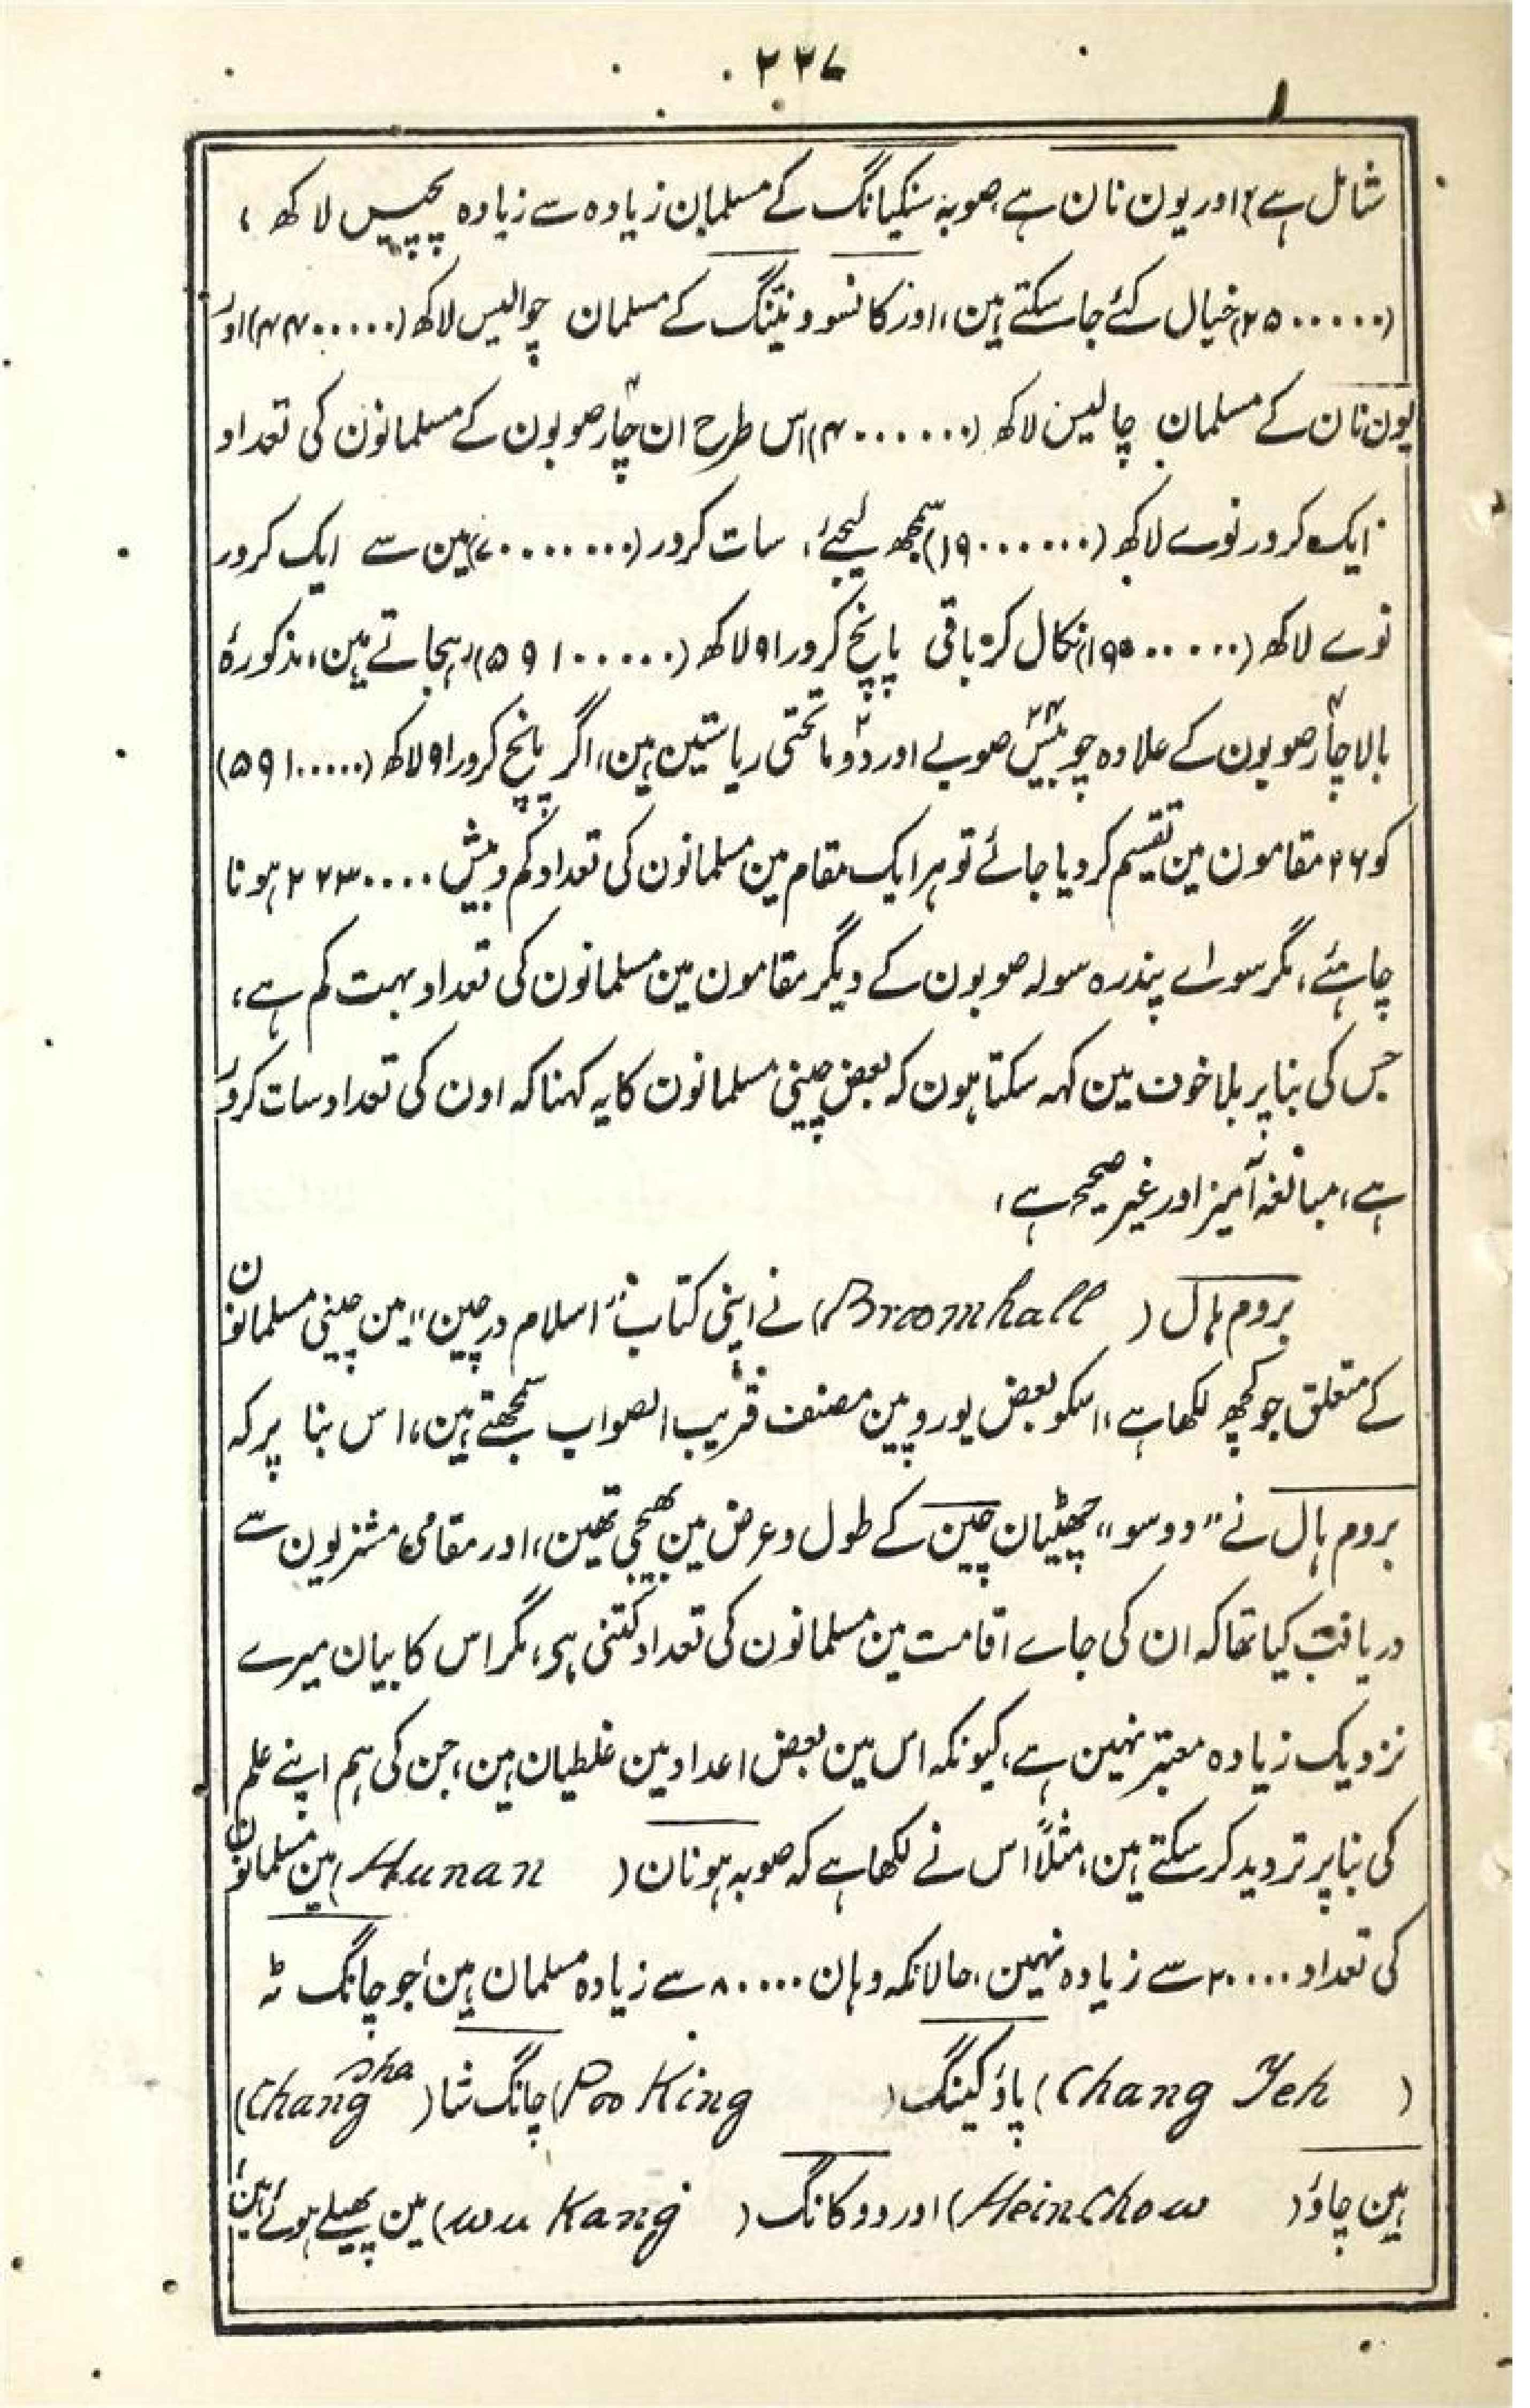 ۲۲۷
شامل ہے) اور یون نان ہے، صوبہ سنکیانگ کے مسلمان زیادہ سے زیادہ پچیس لاکھ،
(۲۵۰۰۰۰۰) خیال کئے جاسکتے ہین، اور کانسو و ننگ کے مسلمان چوالیس لاکھ (۴۴۰۰۰۰۰) اور
یون نان کے مسلمان چالیس لاکھ (۴۰۰۰۰۰۰) اس طرح ان چار۴ صوبون کے مسلمانون کی تعداد
ایک کرور نوے لاکھ (۱۹۰۰۰۰۰۰) سمجھ لیجئے، سات کرور (۷۰۰۰۰۰۰۰) مین سے ایک کرور
نوے لاکھ (۱۹۰۰۰۰۰۰) نکال کر باقی پانچ کرور ۹۱ لاکھ (۵۹۱۰۰۰۰۰) رہجاتے ہین، مذکورۂ
بالا چار۴ صوبون کے علاوہ چوبیس۲۴ صوبے اور دو۲ ماتحتی ریاستین ہین، اگر پانچ کرور ۹۱ لاکھ (۵۹۱۰۰۰۰۰)
کو ۲۶ مقامون مین تقسیم کردیا جائے تو ہر ایک مقام مین مسلمانون کی تعداد کم و بیش ۲۲۷۳۰۰۰۰ ہونا
چاہئے، مگر سواے پندرہ سولہ صوبون کے دیگر مقامون مین مسلمانون کی تعداد بہت کم ہے،
جس کی بنا پر بلا خوف مین کہہ سکتا ہون کہ بعض چینی مسلمانون کا یہ کہنا کہ اون کی تعداد سات کرور
ہے، مبالغہ آمیز اور غیر صحیح ہے،
بروم ہال (Broomhall) نے اپنی کتاب "اسلام در چین" مین چینی مسلمانون
کے متعلق جو کچھ لکھا ہے، اسکو بعض یوروپین مصنف قریب الصواب سمجھتے ہین، اس بنا پر کہ
بروم ہال نے "دو سو" چھٹیان چین کے طول و عرض مین بھیجی تھین، اور مقامی مشنریون سے
دریافت کیا تھا کہ ان کی جاے اقامت مین مسلمانون کی تعداد کتنی ہی، مگر اس کا بیان میرے
نزدیک زیادہ معتبر نہین ہے، کیونکہ اس مین بعض اعداد مین غلطیان ہین، جن کی ہم اپنے علم
کی بنا پر تردید کرسکتے ہین، مثلاً اس نے لکھا ہے کہ صوبہ ہونان (Hunan) مین مسلمانون
کی تعداد ۲۰۰۰۰ سے زیادہ نہین، حالانکہ وہان ۸۰۰۰۰ سے زیادہ مسلمان ہین، جو چانگ ٹہ
(Chang Teh) پاؤ کینگ (Poo King) چانگ شا (Chang sha)
ہین چاؤ (Heinchow) اور وو کانگ (Wu Kang) مین پھیلے ہوئے ہین،